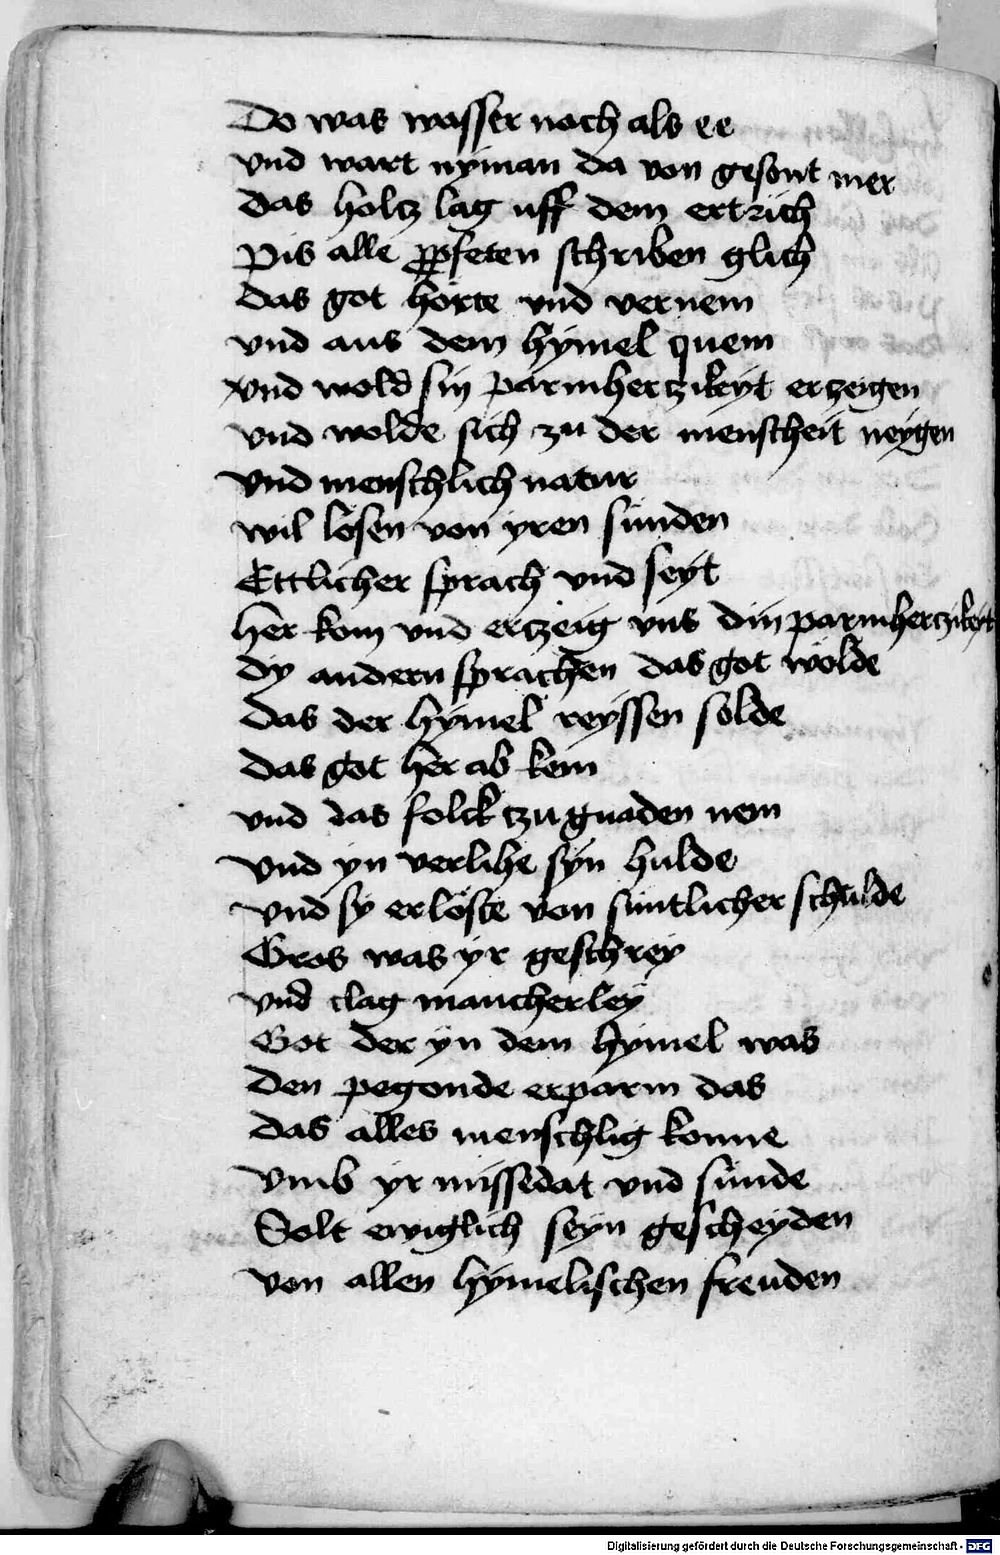 Do was wasser noch als ee
vnd wart nyman da von gesont mer
das holtz lag uff dem ertrich
Pis alle ꝓpfeten schriben glich
das got hörte vnd vernem
vnd aus dem hymel quem
vnd wold sin parmhertzikeyt erzeigen
vnd wolde sich zu der menscheit neygen
vnd menschlich natur
wil lösen von yren sunden
Ettlicher sprach vnd seyt
her kom vnd ertzeig vns din parmhertzikeit
dy andern sprachen das got wölde
das der hymel reyssen solde
das got her ab kem
vnd das folck tzu gnaden nem
vnd yn verlihe syn hulde
vnd sy erlöste von suntlicher schulde
Gros was yr geschrey
vnd clag mancherley
Got der yn dem hymel was
den pegonde erparm das
das alles menschlig konne
vmb yr missedat vnd sunde
Solt ewiglich seyn gescheyden
von allen hymelischen freuden
Digitalisierung gefördert durch die Deutsche Forschungsgemeinschaft - DFG